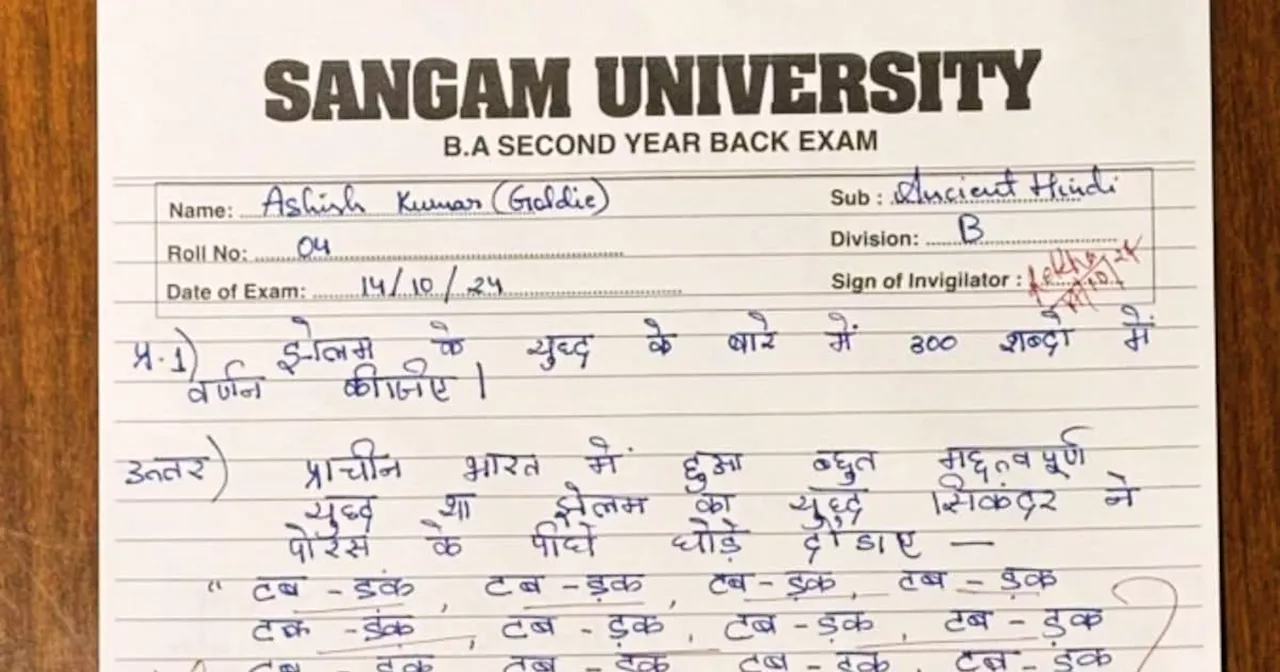 SANGAM UNIVERSITY
B.A SECOND YEAR BACK EXAM
Name: Ashish Kumar (Goldie) Sub : Ancient Hindi
Roll No: 04 Division: B
Date of Exam: 14/10/24 Sign of Invigilator : Rekha
प्र.1) झेलम के युध्द के बारे में 300 शब्दों में
वर्णन कीजिए ।
उत्तर) प्राचीन भारत में हुआ बहुत महत्वपूर्ण
युध्द था झेलम का युध्द सिकंदर ने
पोरस के पीछे घोड़े दौडाए —
" टब - डंक , टब - ड़क , टब - ड़क , टब - ड़क
टक - डंक , टब - ड़क , टब - ड़क , टब - ड़क
टब - डक टब - डक टब - डक , टब - डक